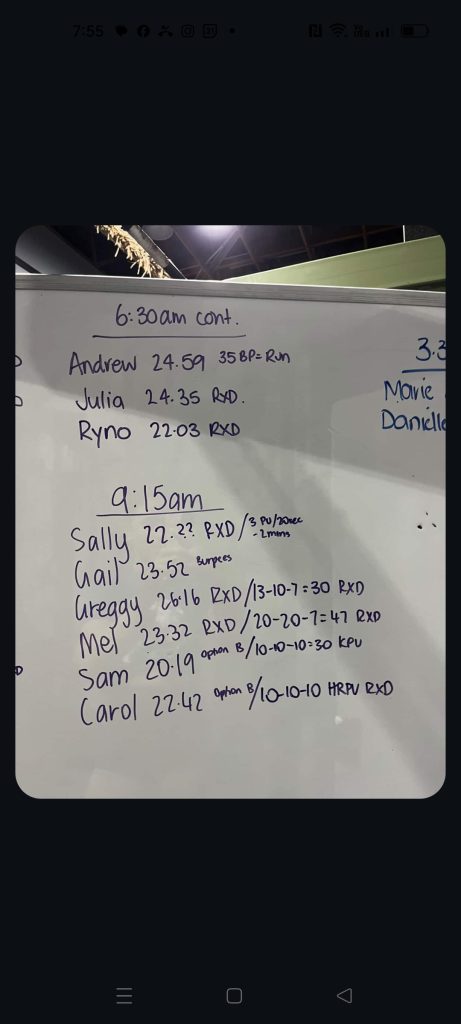 7:55
31
6:30am cont.
Andrew 24.59 35 BP = Run
Julia 24.35 RXD.
Ryno 22.03 RXD
3.3
Marie
Danielle
9:15am
Sally 22.?? RXD / 3 PU/20sec
- 2mins
Gail 23.52 Burpees
Greggy 26.16 RXD/13-10-7=30 RXD
Mel 23:32 RXD/20-20-7=47 RXD
Sam 20.19 option B/10-10-10=30 KPU
Carol 22.42 Option B/10-10-10 HRPU RXD